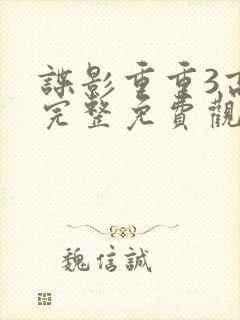 諜影重重3,高
完整免費觀
魏信誠